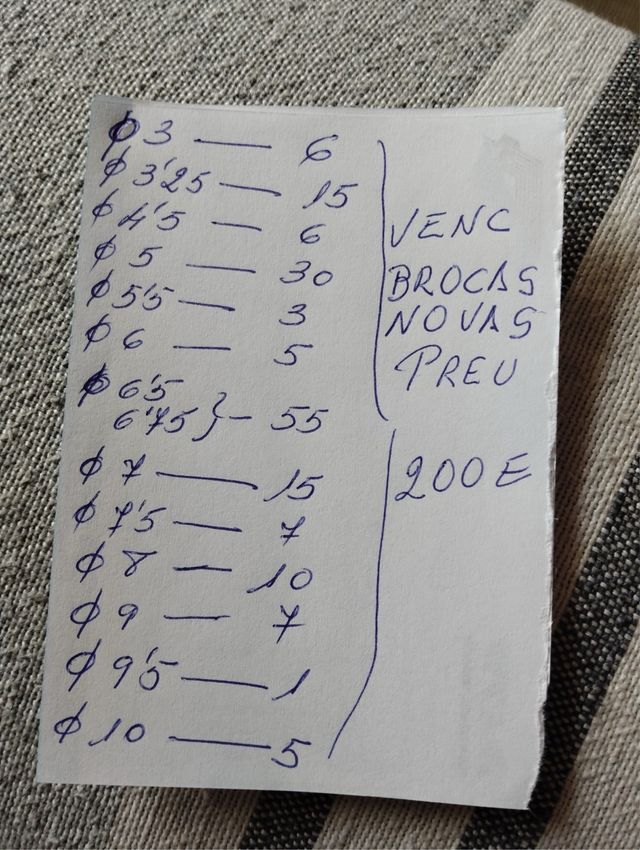 ø 3 — 6
ø 3'25 — 15
ø 4'5 — 6
ø 5 — 30
ø 5'5 — 3
ø 6 — 5
ø 6'5
6'75 } — 55
ø 7 — 15
ø 7'5 — 7
ø 8 — 10
ø 9 — 7
ø 9'5 — 1
ø 10 — 5
VENC
BROCAS
NOVAS
PREU
200E